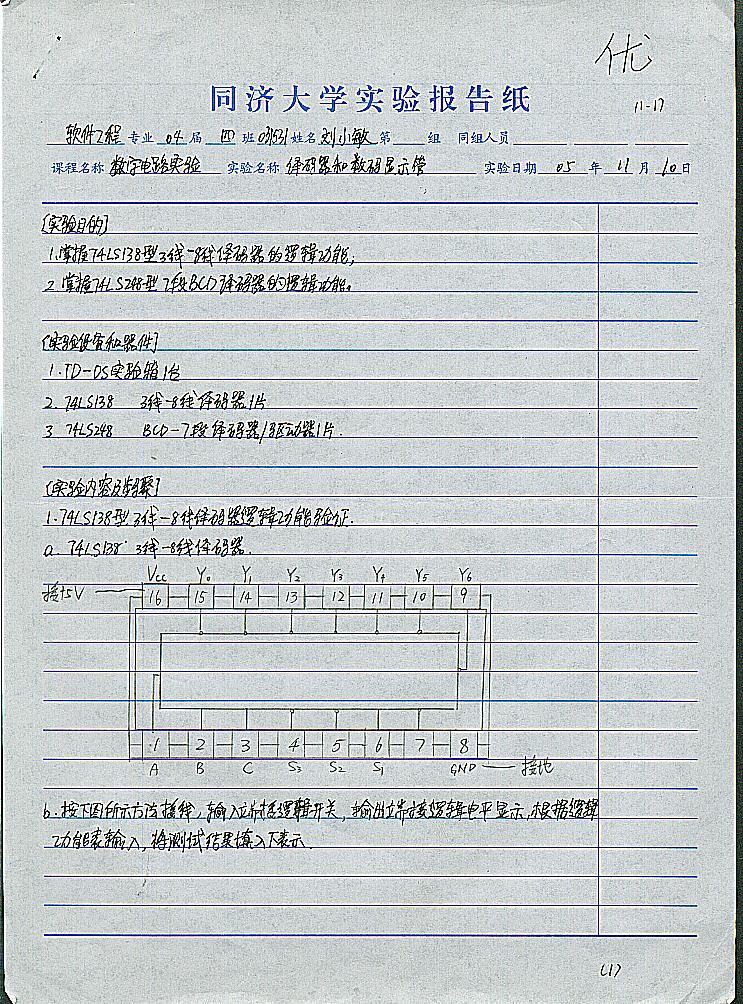 优
同济大学实验报告纸
11-17
软件工程 专业 04 届 四 班 031531 姓名 刘小敏 第 组 同组人员
课程名称 数字电路实验 实验名称 译码器和数码显示管 实验日期 05 年 11 月 10 日
[实验目的]
1.掌握74LS138型3线-8线译码器的逻辑功能;
2.掌握74LS248型7段BCD译码器的逻辑功能。
[实验设备和器件]
1.TD-DS实验箱1台
2.74LS138 3线-8线译码器1片
3 74LS248 BCD-7段译码器/驱动器1片.
[实验内容及步骤]
1.74LS138型3线-8线译码器逻辑功能验证.
a. 74LS138 3线-8线译码器.
Vcc Y0 Y1 Y2 Y3 Y4 Y5 Y6
接+5V 16 15 14 13 12 11 10 9
1 2 3 4 5 6 7 8
A B C S3 S2 S1 GND 接地
b.按下图所示方法接线,输入端接逻辑开关,输出端接逻辑电平显示,根据逻辑
功能表输入,将测试结果填入下表示.
(1)